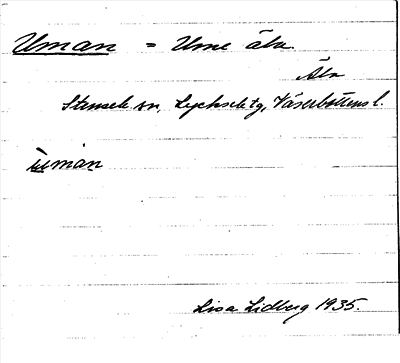 Uman = Ume älv.
Älv
Stensele sn, Lycksele tg, Västerbottens l.
ùmàn
Lisa Lidberg 1935.